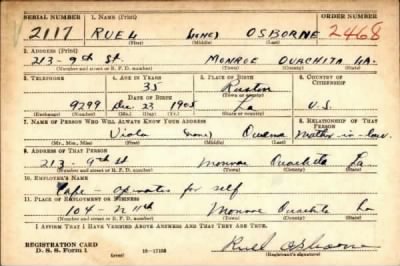 SERIAL NUMBER 1. NAME (Print) ORDER NUMBER
2117 RUEL (NONE) OSBORNE 2468
(First) (Middle) (Last)
2. ADDRESS (Print)
213-9th St. MONROE OUACHITA LA.
(Number and street or R. F. D. number) (Town) (County) (State)
3. TELEPHONE 4. AGE IN YEARS 5. PLACE OF BIRTH 6. COUNTRY OF CITIZENSHIP
35 Ruston
DATE OF BIRTH (Town or county)
9299 Dec. 23 1905 La U.S.
(Exchange) (Number) (Mo.) (Day) (Yr.) (State or country)
7. NAME OF PERSON WHO WILL ALWAYS KNOW YOUR ADDRESS 8. RELATIONSHIP OF THAT PERSON
Viola (none) Owens Mother-in-law
(Mr., Mrs., Miss) (First) (Middle) (Last)
9. ADDRESS OF THAT PERSON
213-9th St Monroe Ouachita La
(Number and street or R. F. D. number) (Town) (County) (State)
10. EMPLOYER'S NAME
Cafe - operates for self
11. PLACE OF EMPLOYMENT OR BUSINESS
104-N 11th Monroe Ouachita La
(Number and street or R. F. D. number) (Town) (County) (State)
I AFFIRM THAT I HAVE VERIFIED ABOVE ANSWERS AND THAT THEY ARE TRUE.
REGISTRATION CARD
D. S. S. Form 1 (over) 16-17105 Ruel Osborne
(Registrant's signature)